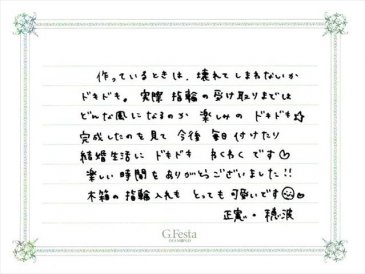 作っているときは、壊れてしまわないか
ドキドキ。実際 指輪の受け取りまでは
どんな風になるのか 楽しみの ドキドキ☆
完成したのを見て 今後 毎日 付けたり
結婚生活に ドキドキ わくわく です♡
楽しい時間を ありがとうございました!!
木箱の指輪入れも とっても 可愛いです
正寛・穂波
G.Festa
DIAMOND